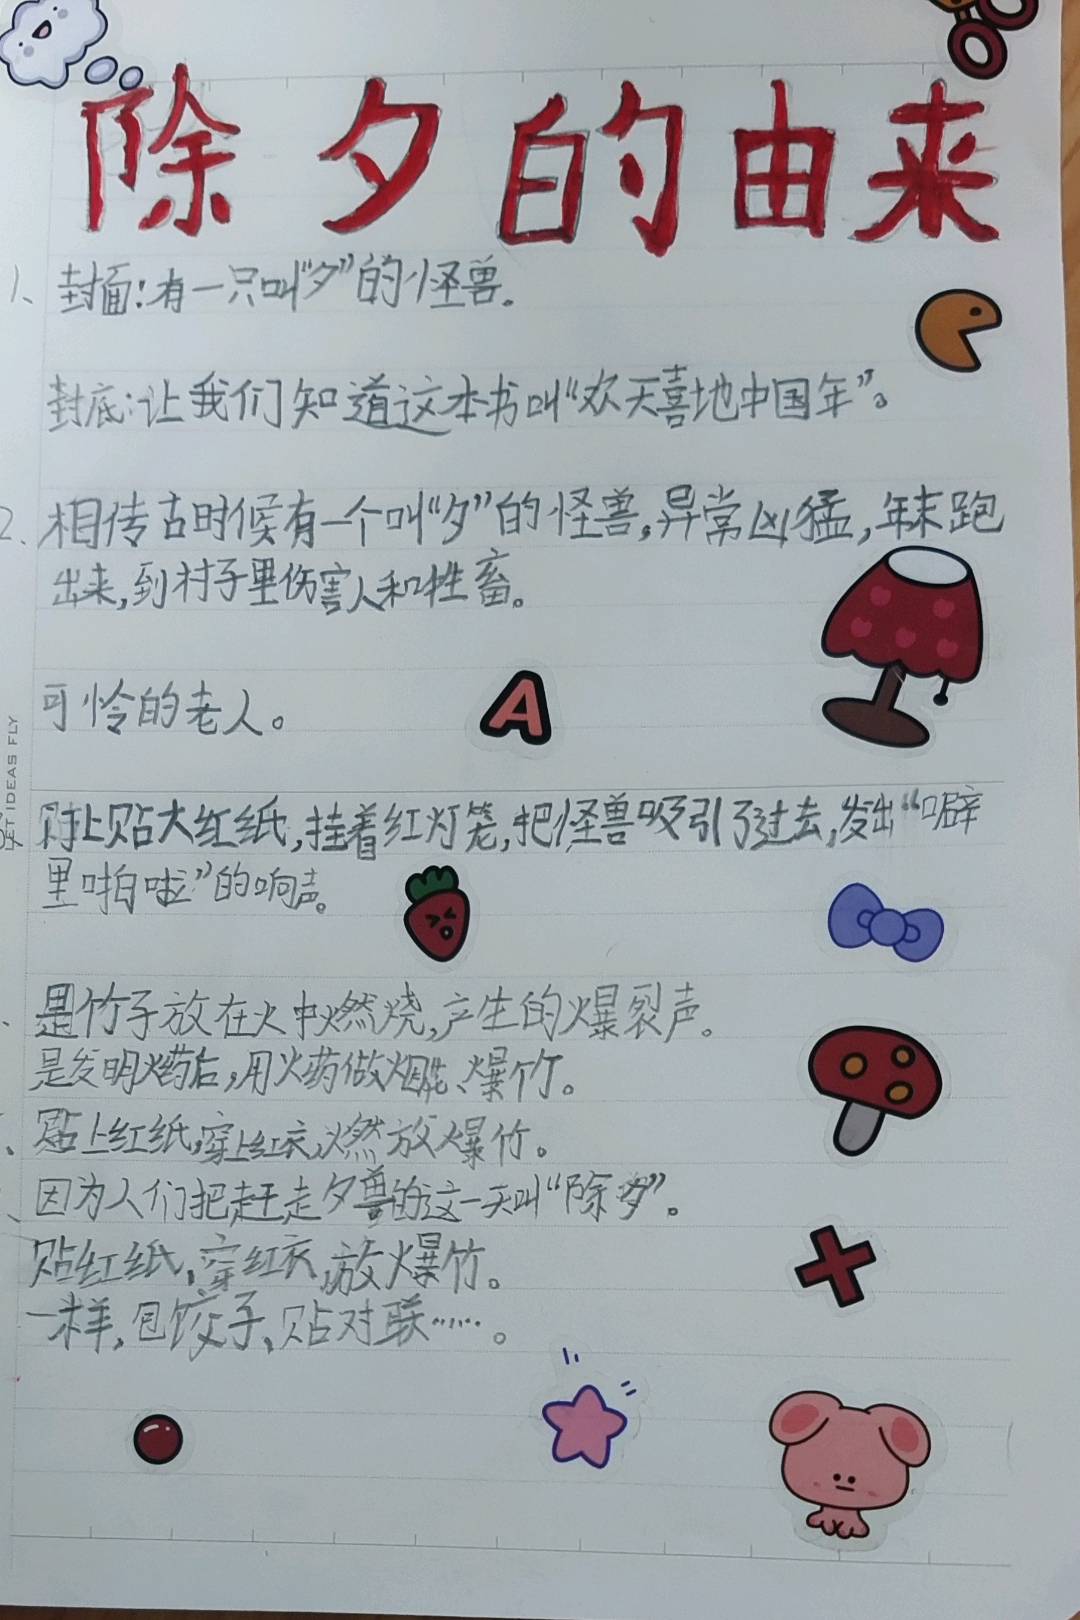 除夕的由来
1、封面：有一只叫“夕”的怪兽。
封底：让我们知道这本书叫“欢天喜地中国年”。
2、相传古时候有一个叫“夕”的怪兽。异常凶猛，年末跑
出来，到村子里伤害人和牲畜。
可怜的老人。
贴上贴大红纸，挂着红灯笼，把怪兽吸引了过去，发出“噼
里啪啦”的响声。
是竹子放在火中燃烧，产生的爆裂声。
是发明火药后，用火药做烟花、爆竹。
贴上红纸，穿上红衣，燃放爆竹。
因为人们把赶走夕兽的这一天叫“除夕”。
贴红纸，穿红衣，放爆竹。
一样，包饺子、贴对联……。
A
SET IDEAS FLY